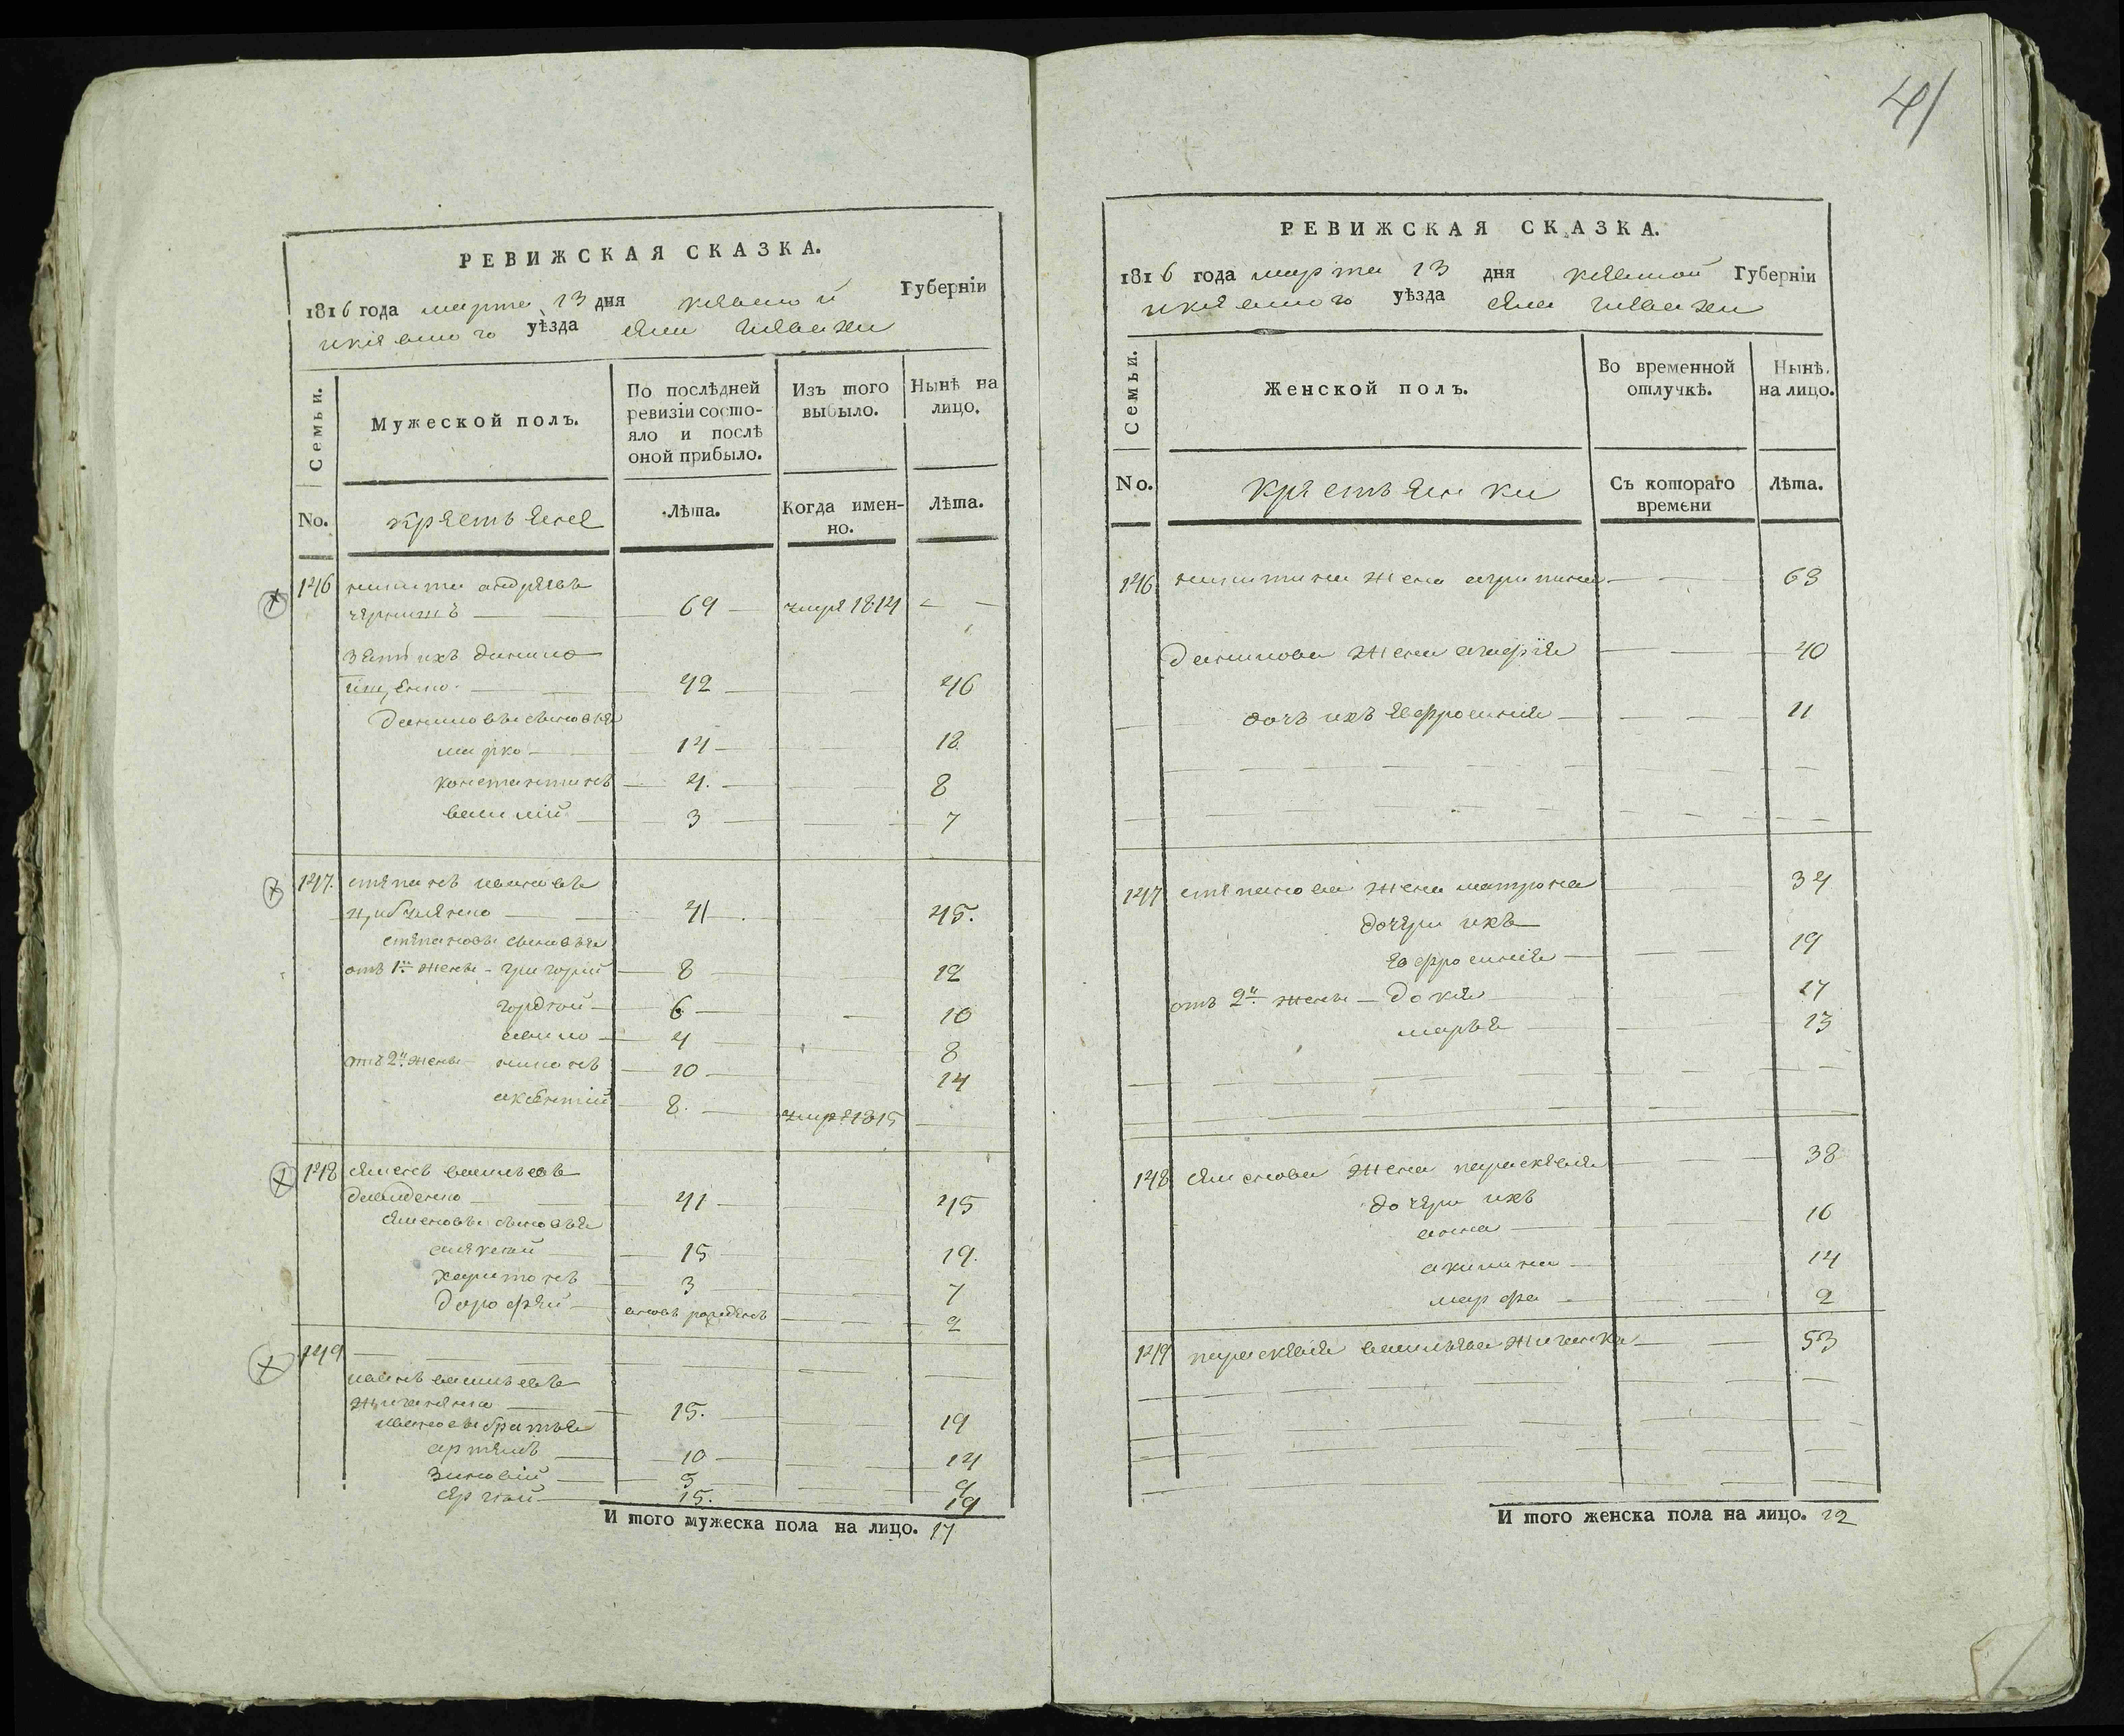 41
РЕВИЖСКАЯ СКАЗКА.
1816 года марта 13 дня киевской Губерніи
икіевского уѣзда села
Семьи.
Мужеской полъ.
По послѣдней ревизіи состо-
яло и послѣ
оной прибыло.
Изъ того
выбыло.
Нынѣ на
лицо.
No.
крестьяне
Лѣта.
Когда имен-
но.
Лѣта.
146 никита андреевъ
69 умре 1814
зять ихъ данило
42 46
даниловы сыновья
марко 14 18
константинъ 4. 8
василій 3 7
147. степанъ ивановъ
41 45.
степановы сыновья
отъ 1й жены - григорий 8 12
гордѣй 6 10
савило 4 8
отъ 2й жены 10 14
аксентий 8. умре 1815
148 семенъ васильевъ
давиденко 41 45
семеновы сыновья
алексѣй 15 19.
харитонъ 3 7
дорофей вновь рожденъ 2
149
иванъ васильевъ
15. 19
ивановы братья
артемъ 10 14
зиновій 5 9
сергѣй 15. 19
И того мужеска пола на лицо. 17
РЕВИЖСКАЯ СКАЗКА.
1816 года марта 13 дня киевской Губерніи
икіевского уѣзда села
Семьи.
Женской полъ.
Во временной
отлучкѣ.
Нынѣ
на лицо.
No.
крестьянки
Съ котораго
времени
Лѣта.
146 никитина жена агрипина 63
данилова жена марія 40
дочь ихъ евфросинія 11
147 степанова жена матрона 34
дочери ихъ
евфросинія 19
отъ 2й жены - докія 17
марья 13
148 семенова жена параскевія 38
дочери ихъ
анна 16
акилина 14
марфа 2
149 параскевія васильева 53
И того женска пола на лицо. 12